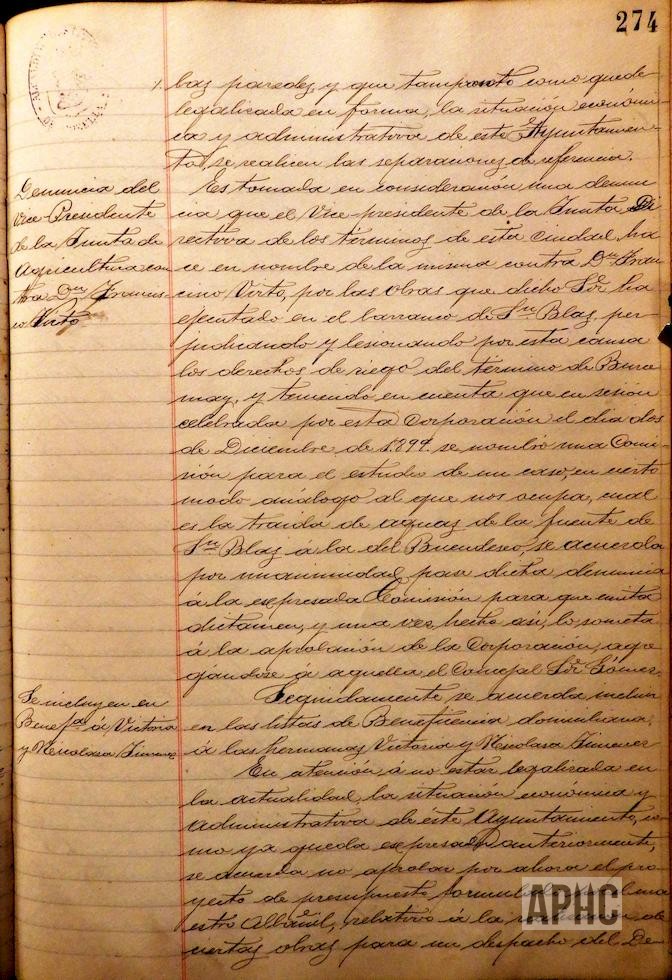 274
bas paredes, y que tan pronto como quede
legalizada en forma, la situación económi-
ca y administrativa de este Ayuntamien-
to, se realicen las reparaciones de referencia.
Denuncia del
Vice Presidente
de la Junta de
Agricultura con
tra Dn. Francis
co Virto
Es tomada en consideración una denun-
cia que el Vice-presidente de la Junta Di
rectiva de los términos de esta Ciudad, ha
ce en nombre de la misma contra Dn. Fran
cisco Virto, por las obras que dicho Sr. ha
ejecutado en el barranco de Sn. Blas, per
judicando y lesionando por esta causa
los derechos de riego del término de Bure
may, y teniendo en cuenta que en sesión
celebrada por esta Corporación el dia dos
de Diciembre de 1.894. se nombró una Comi-
sión para el estudio de un caso, en cierto
modo análogo al que nos ocupa, cual
es la traida de aguas de la fuente de
Sn. Blas á la del Buendeseo, se acuerda
por unanimidad, pase dicha denuncia
á la expresada Comisión para que emita
dictamen, y una vez hecho asi, lo someta
á la aprobación de la Corporación, agre
gándose á aquella el Concejal Sr. Gómez.
Se incluyen en
Benefa. á Victoria
y Nicolasa Jimenez
Seguidamente, se acuerda incluir
en las listas de Beneficencia domiciliaria,
á las hermanas Victoria y Nicolasa Jimenez
En atención á no estar legalizada en
la actualidad, la situación económica y
administrativa de éste Ayuntamiento, co-
mo ya queda expresado anteriormente,
se acuerda no aprobar por ahora el pro
yecto de presupuesto formulado
estro Albañil, relativo á la de
ciertas obras para un despacho del De
APHC